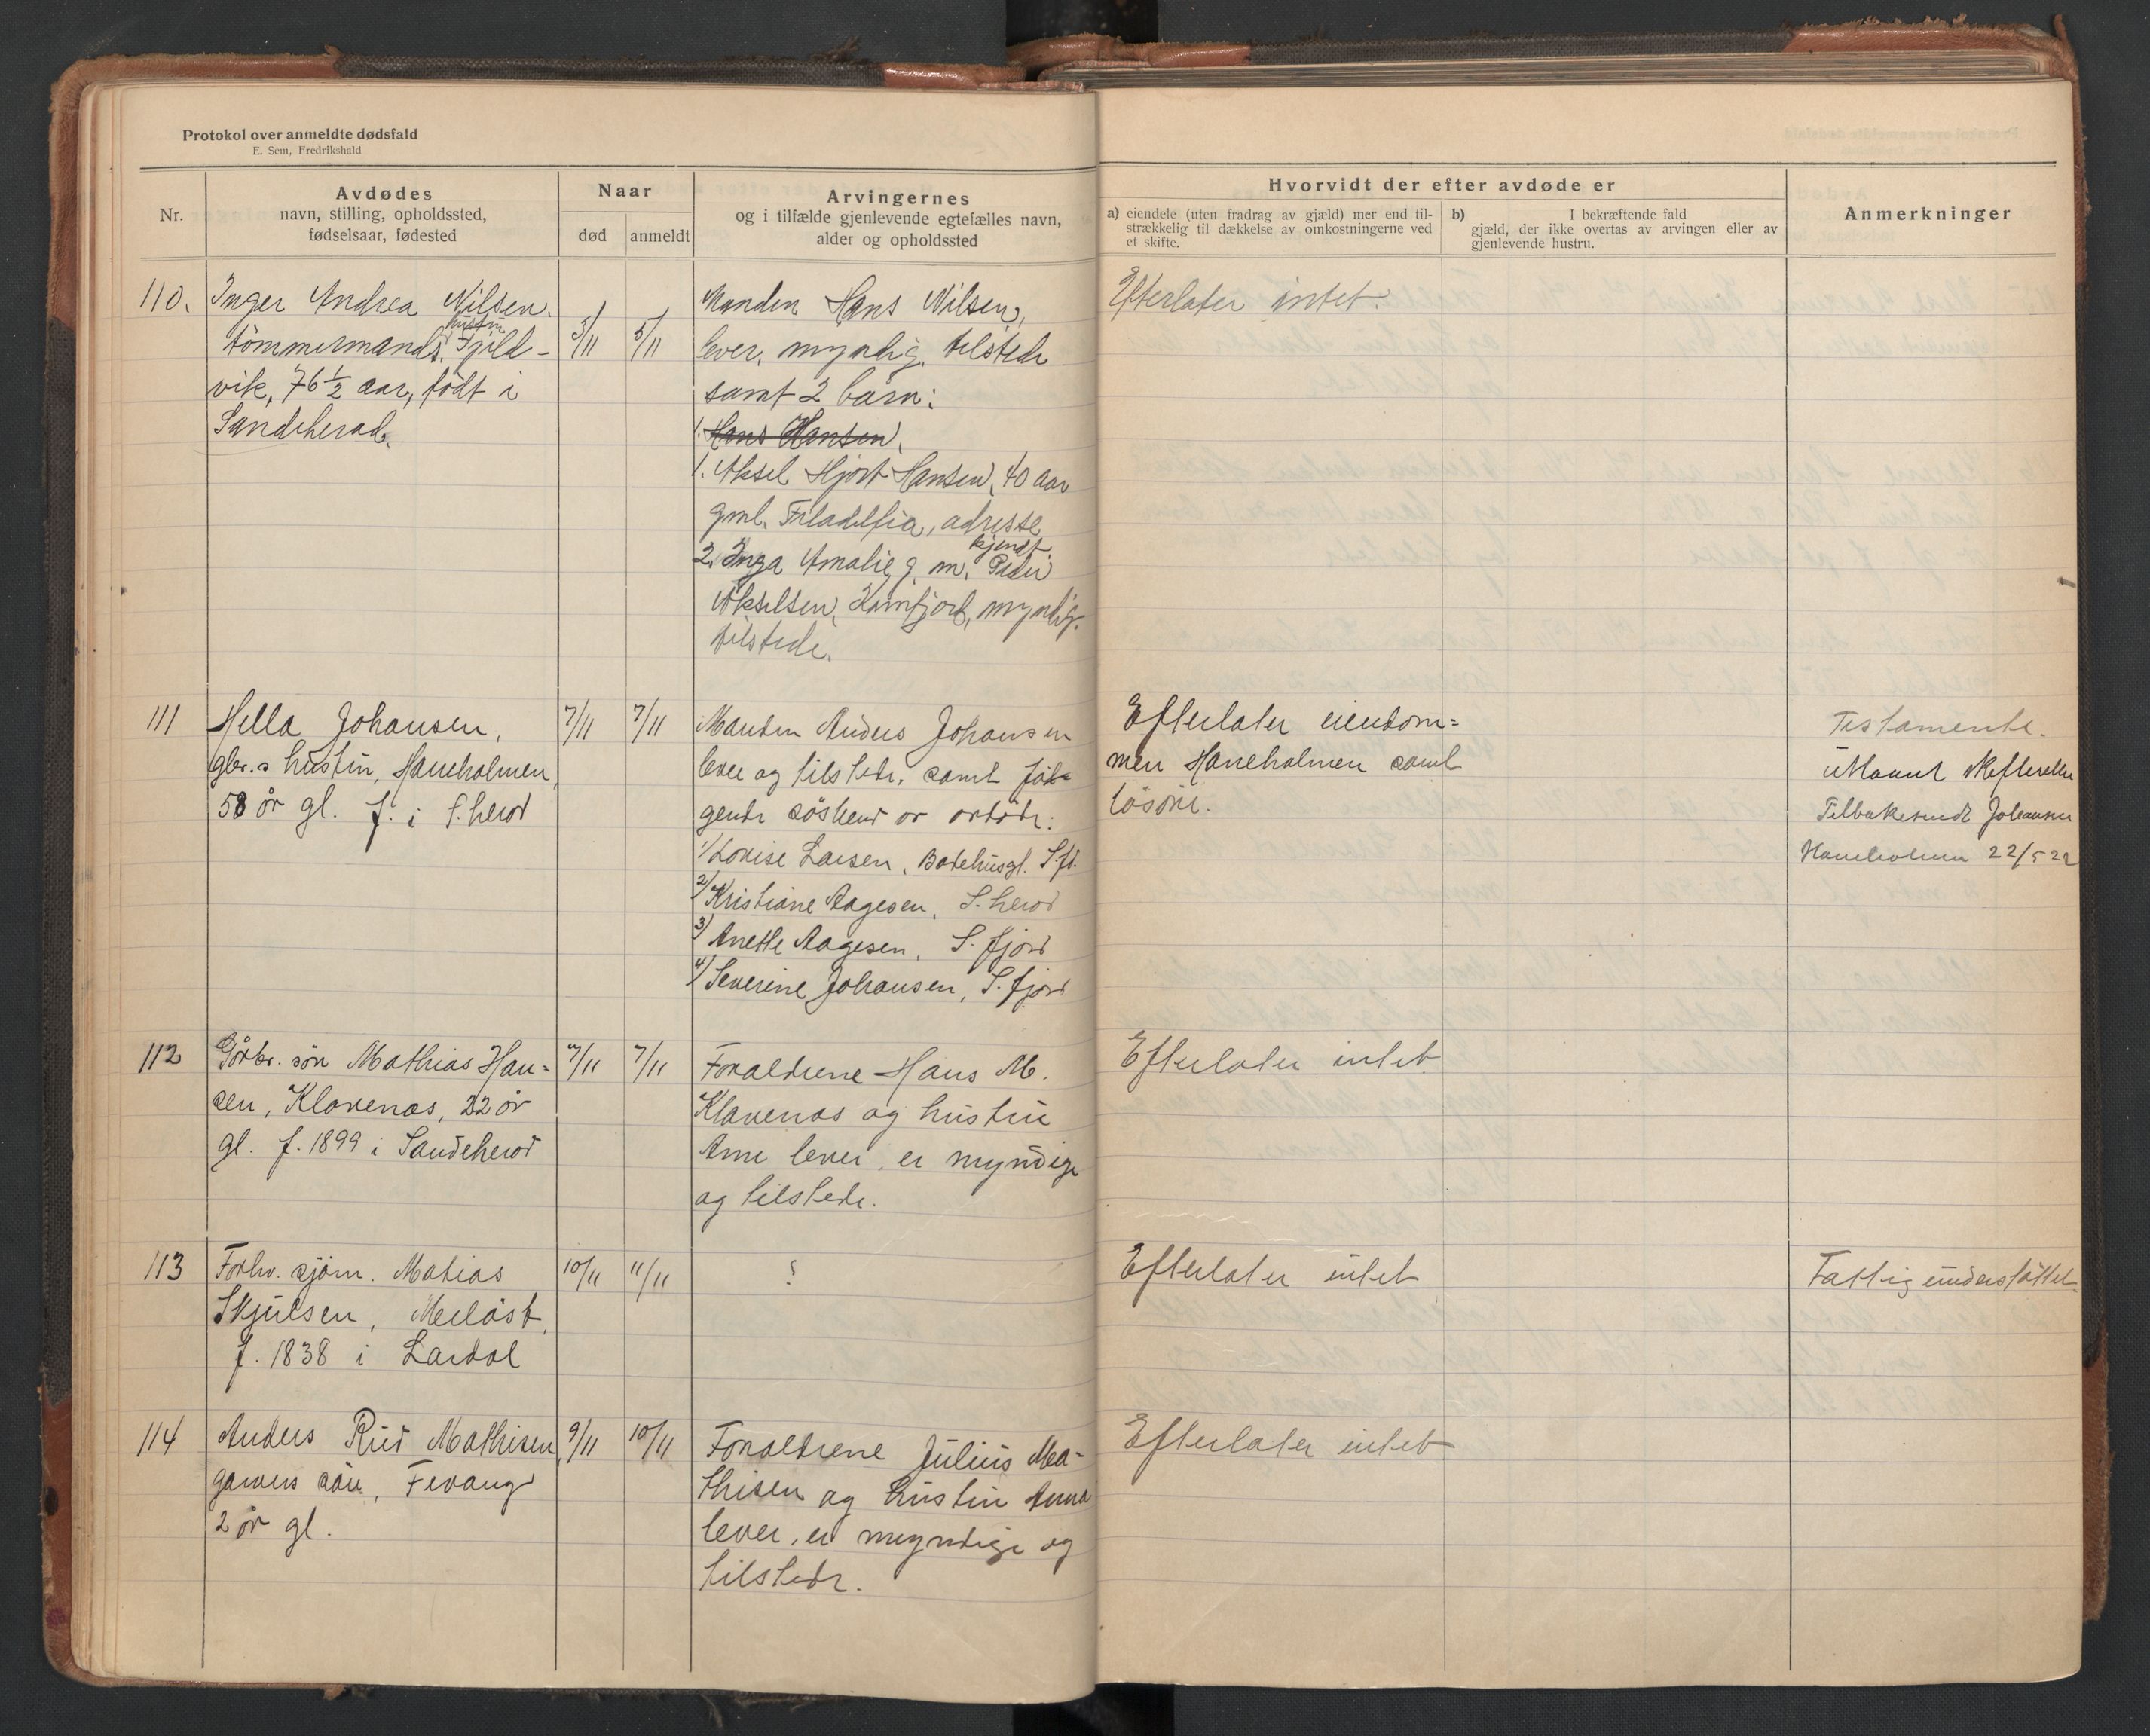 Protokol over anmeldte dødsfald
E. Sem, Fredrikshald
Nr.
Avdødes
navn, stilling, opholdssted,
fødselsaar, fødested
Naar
død
anmeldt
Arvingernes
og i tilfælde gjenlevende egtefælles navn,
alder og opholdssted
Hvorvidt der efter avdøde er
a) eiendele (uten fradrag av gjæld) mer end til-
strækkelig til dækkelse av omkostningerne ved
et skifte.
b) I bekræftende fald
gjæld, der ikke overtas av arvingen eller av
gjenlevende hustru.
Anmerkninger
110.
Inger Andrea Nilsen.
hustru
tømmermands, Fjeld-
vik, 76 1/2 aar, født i
Sandeherad.
3/11
5/11
Manden Hans Nilsen,
lever, myndig, tilstede
samt 2 barn:
1. Hans Hansen,
1. Aksel Hjort Hansen, 40 aar
gml. Filadelfia, adresse
kjendt.
2. Inga Amalie g. m. Peder
Akselsen, Kamfjord, myndig.
tilstede.
Efterlater intet.
111
Hella Johansen,
gbr.s hustru, Haneholmen,
58 år gl. f. i S.herad
7/11
7/11
Manden Anders Johansen
lever og tilstede, samt føl-
gende søskend av avdøde:
1/ Lovise Larsen, Badehusgt. S.fj.
2/ Kristiane Aagesen, S.herad
3/ Anette Aagesen, S.fjord
4/ Severine Johansen, S.fjord
Efterlater eiendom-
men Haneholmen samt
løsøre.
Testamente.
Tilbakesendt Johansen
Haneholmen 22/5 22
112
Gårbr. søn Mathias Han-
sen, Klavenæs, 22 år
gl. f. 1899 i Sandeherad
7/11
7/11
Forældrene Hans M.
Klavenæs og hustru
Anne lever, er myndige
og tilstede.
Efterlater intet
113
Forhv. sjøm. Matias
Skjulsen, Meløst,
f. 1838 i Lardal
10/11
11/11
?
Efterlater intet
Fattigunderstøttet.
114
Anders Rud Mathisen,
garvers søn, Fevang
2 år gl.
9/11
10/11
Forældrene Julius Ma-
thisen og hustru Anna
lever, er myndige og
tilstede.
Efterlater intet